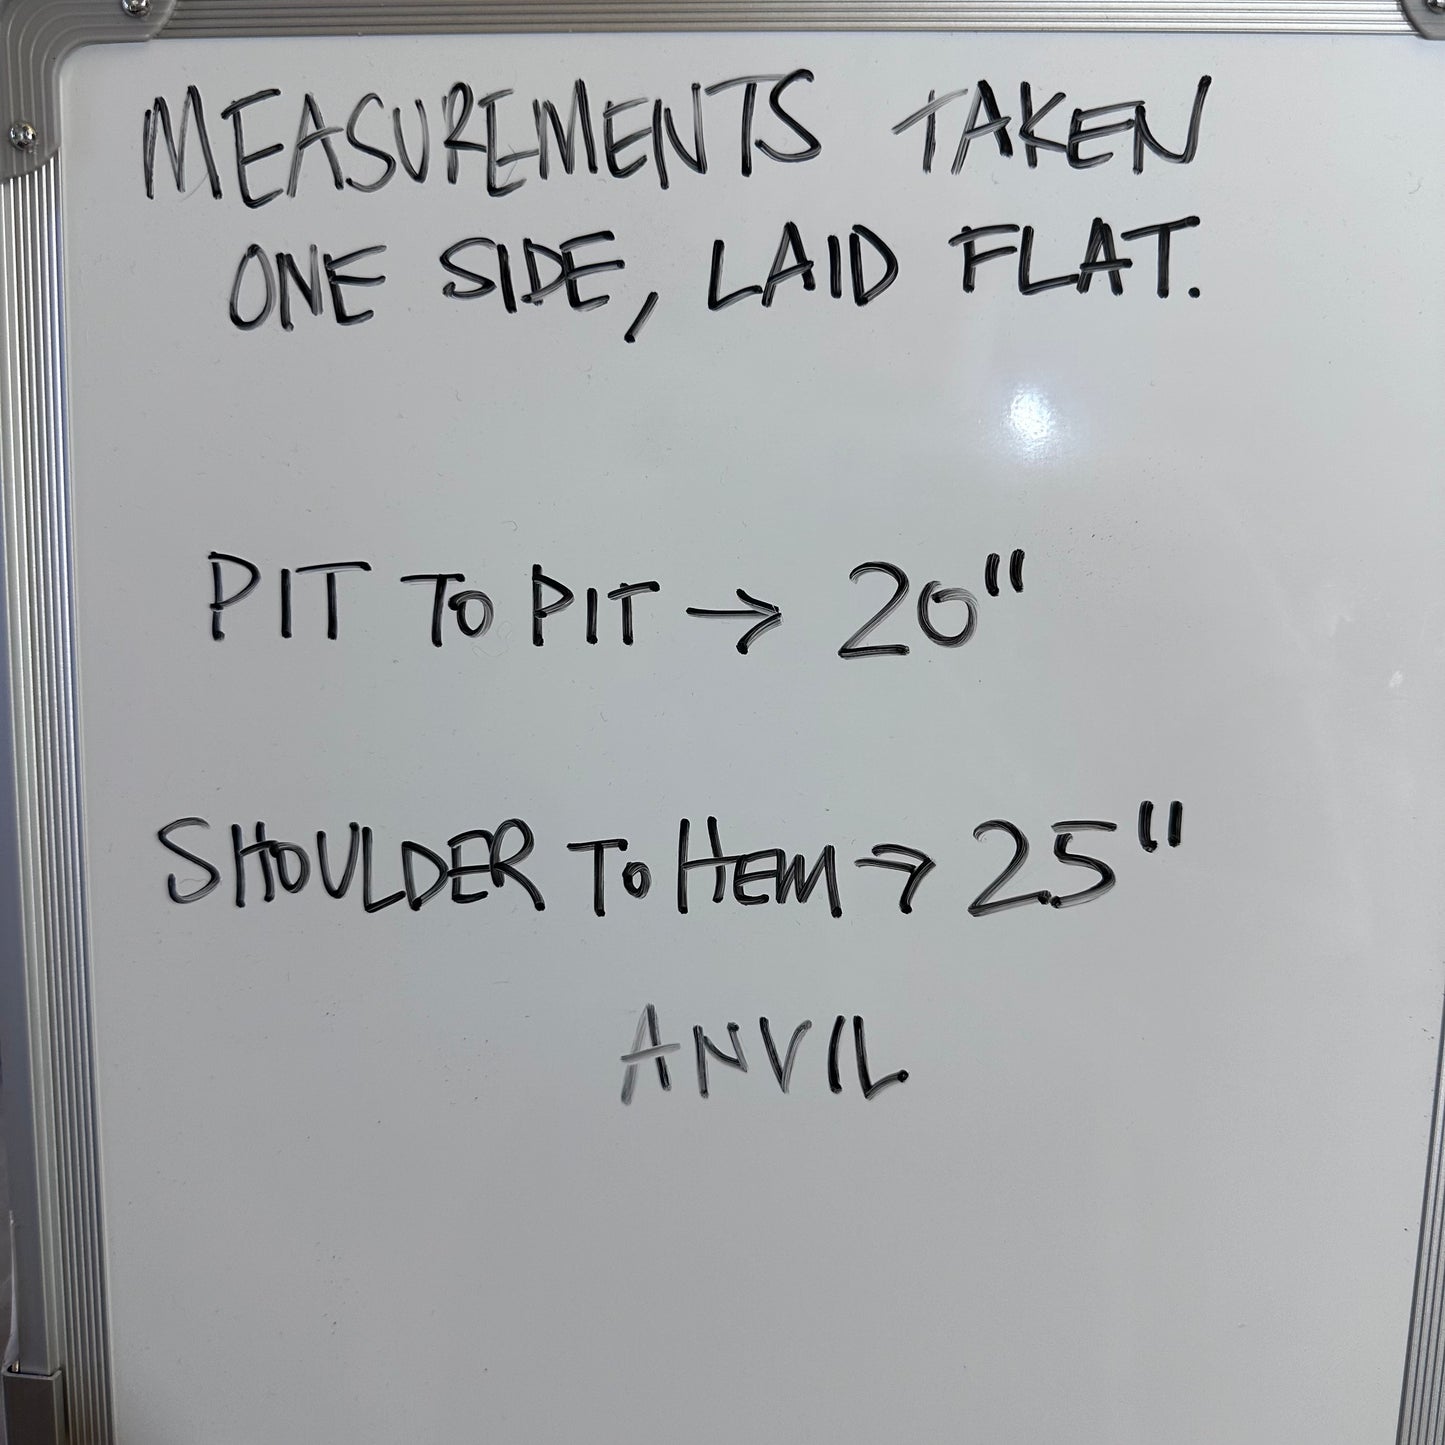 MEASUREMENTS TAKEN
ONE SIDE, LAID FLAT.
PIT TO PIT → 20"
SHOULDER TO HEM → 25"
ANVIL